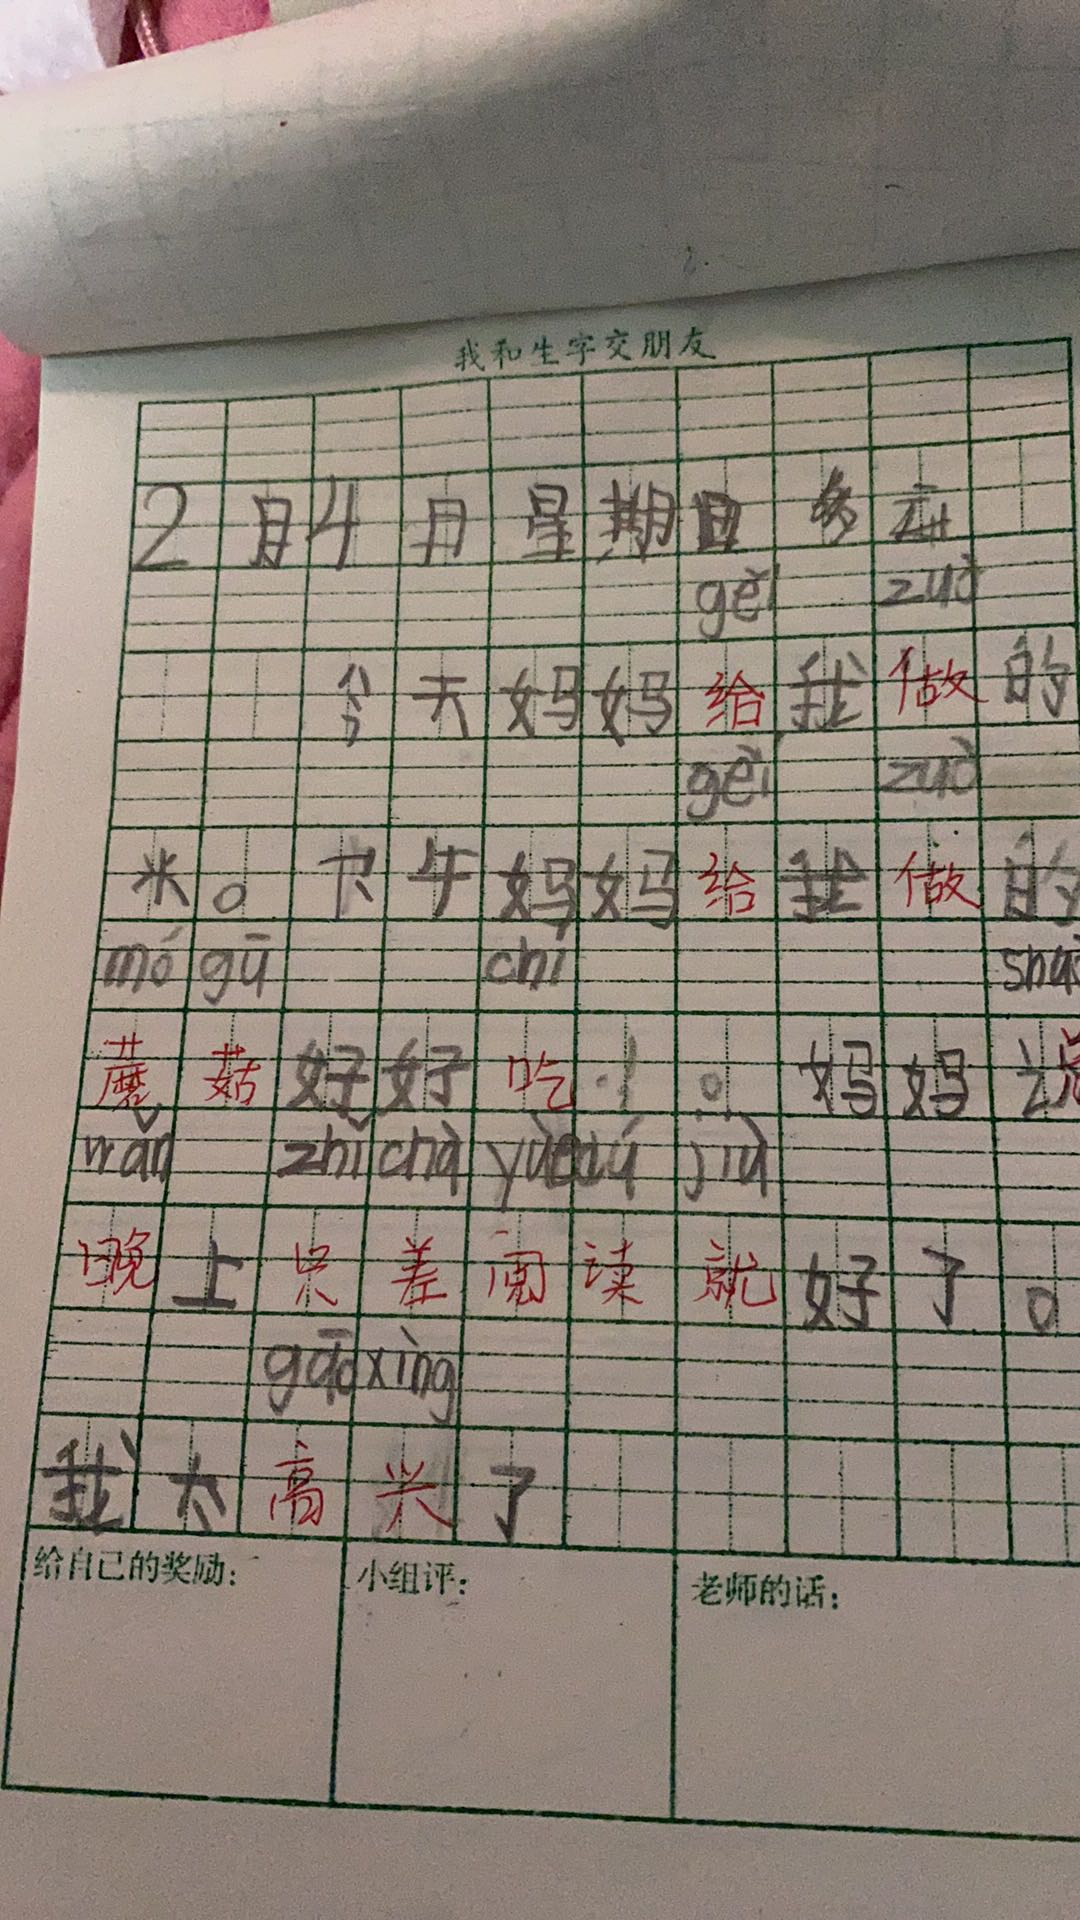 我和生字交朋友
2月4日星期日 多云
gěi zuò
今天妈妈给我做的
gěi zuò
米。下午妈妈给我做的
mó gū chī shuō
蘑菇好好吃!。妈妈说
wǎn zhǐ chà yuè dú jiù
晚上只差阅读就好了。
gāo xìng
我太高兴了
给自己的奖励: 小组评: 老师的话: